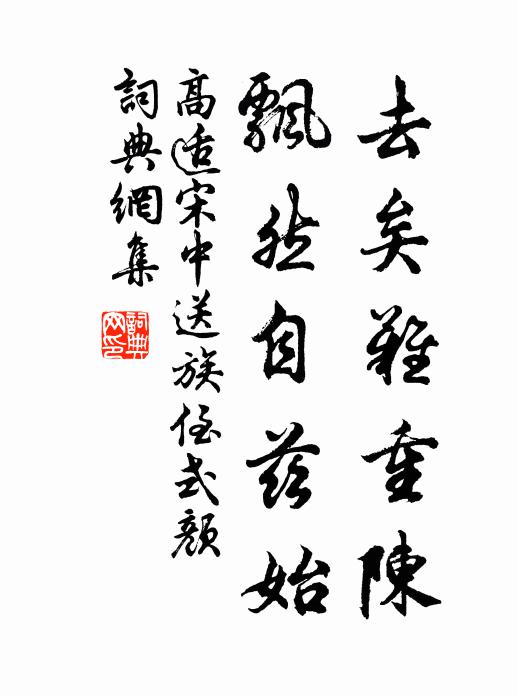 去矣難重陳
飄然自茲始
高适宋中送族侄式顏
詞典網集
詞典網印